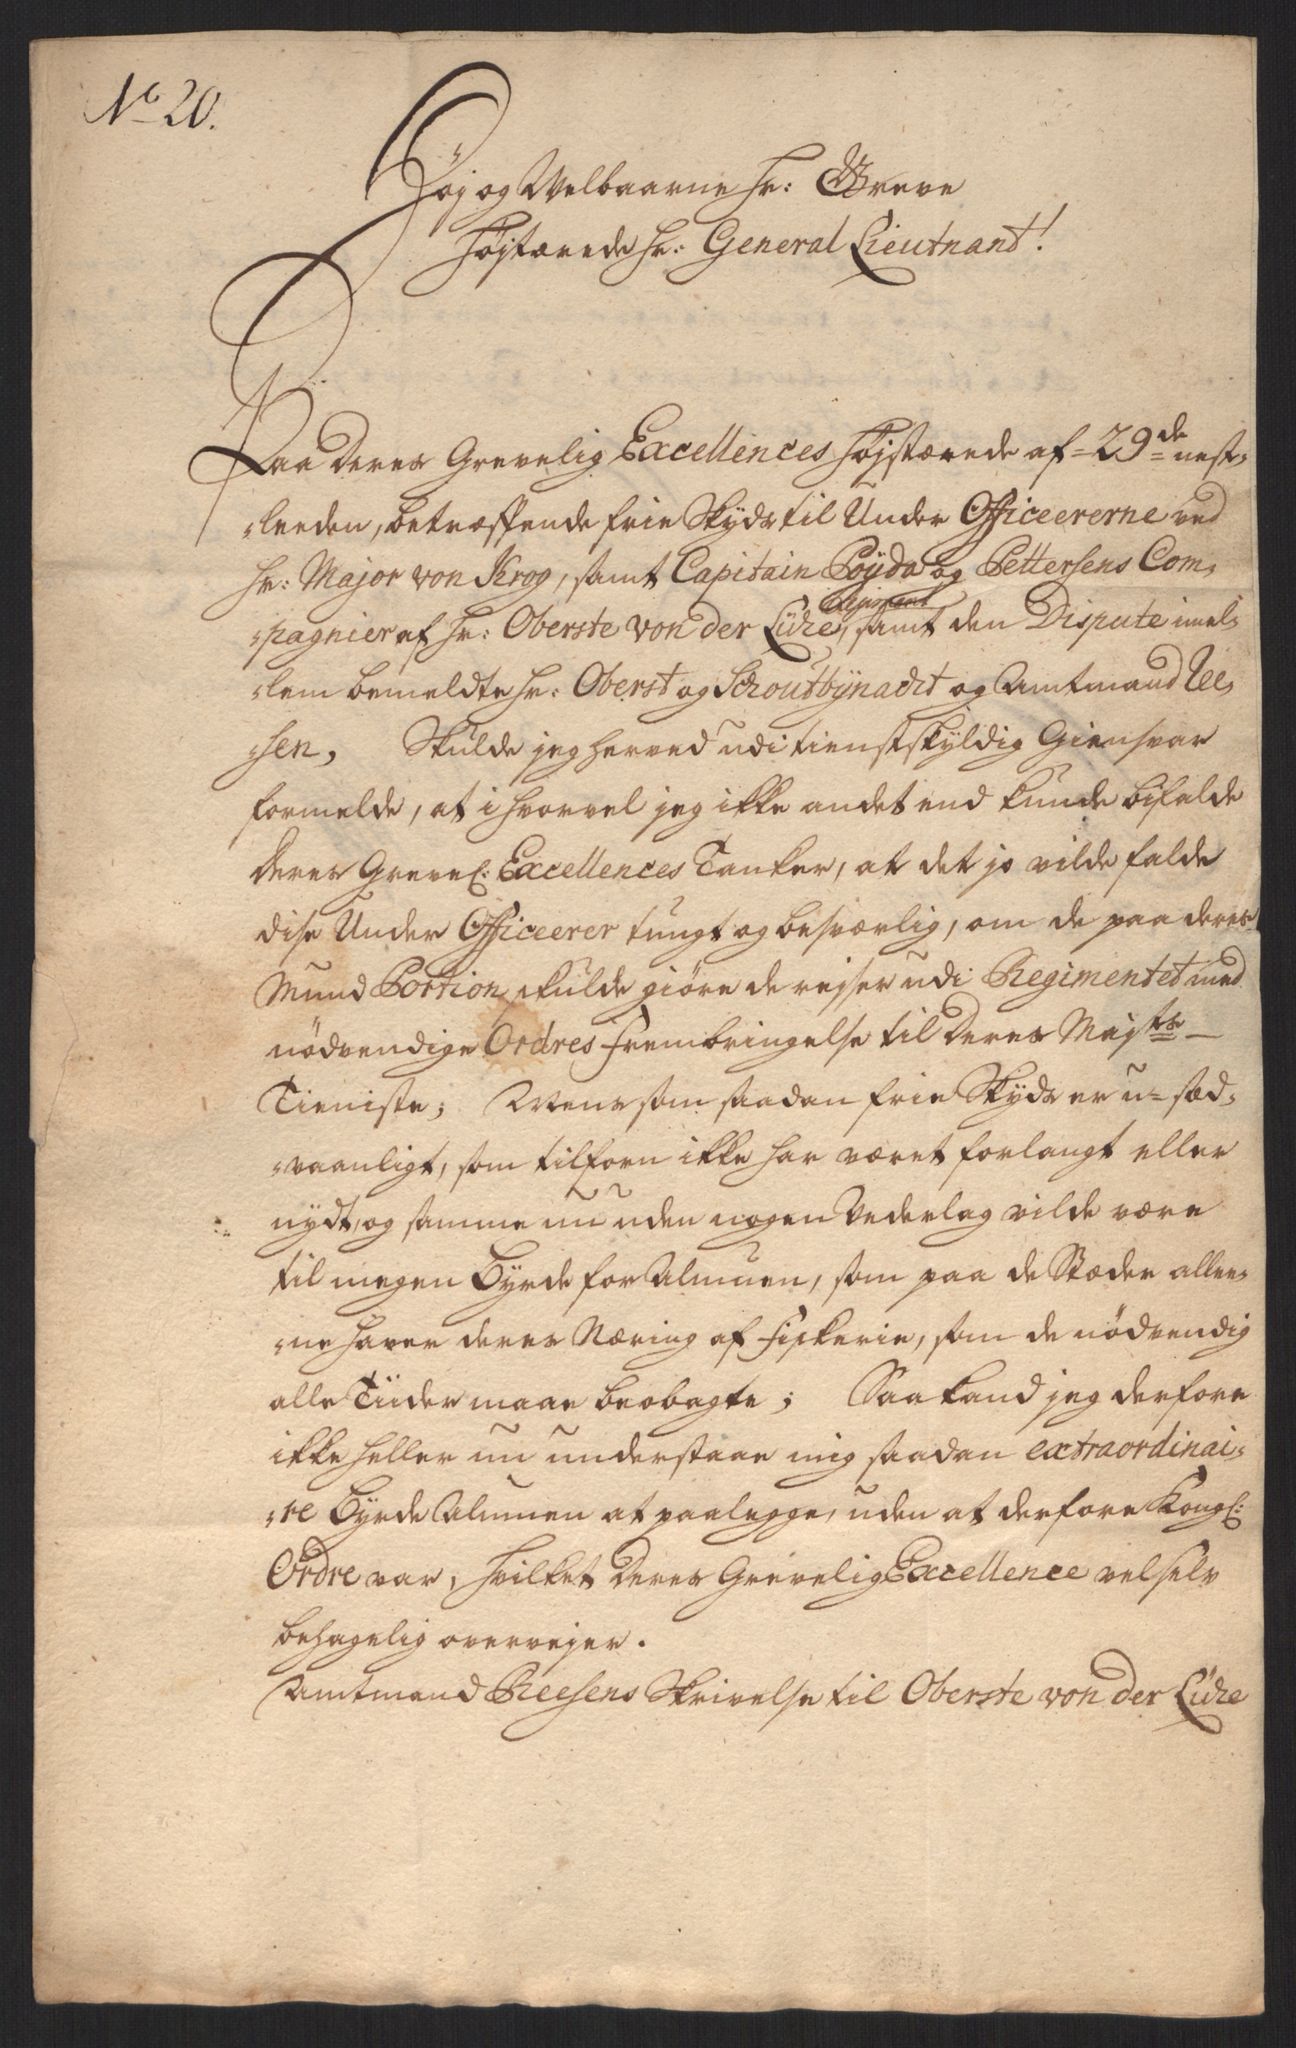 No 20.
Høj og Welbaarne Hr: Greve
Højstærede Hr: General Lieutnant!
Paa Deres Grevelig Excellences højstærede af 29de nest-
-leeden, betræffende frie Skyds til Under Officeererne ved
Hr: Major von Krog, samt Capitain Poÿda og Pettersens Com-
Regiment
-pagnier af Hr: Oberste von der Lühe, samt den Dispute imel-
-lem bemeldte Hr: Oberst og Schoutbÿnacht og Amtmand Ree-
-sen, Skulde jeg herved udi tienstskyldig Giensvar
formelde, at i hvorvel jeg ikke andet end kunde bifalde
Deres Grevel: Excellences Tanker, at det jo vilde falde
dise Under Officeerer tungt og besværlig, om de paa deres
Mund Portion skulde giøre de rejser udi Regimentet med
nødvendige Ordres Frembringelse til Deres Majsts
Tieniste; Mens som saadan frie Skyds er u-sæd-
-vaanligt, som tilforn ikke har været forlangt eller
nydt, og samme nu uden nogen Vederlag vilde være
til megen Byrde for Almuen, som paa de Stæder allee-
-ne haver deres Næring af Fiskerie, som de nødvendig
alle Tiider maae beobagte; Saa kand jeg derfore
ikke heller nu understaae mig saadan extraordinai-
-re Byrde Almuen at paalegge, uden at derfore Kongl:
Ordre var, hvilket Deres Grevelig Excellence velselv
behagelig overvejer.
Amtmand Reesens Skrivelse til Oberste von der Lühe